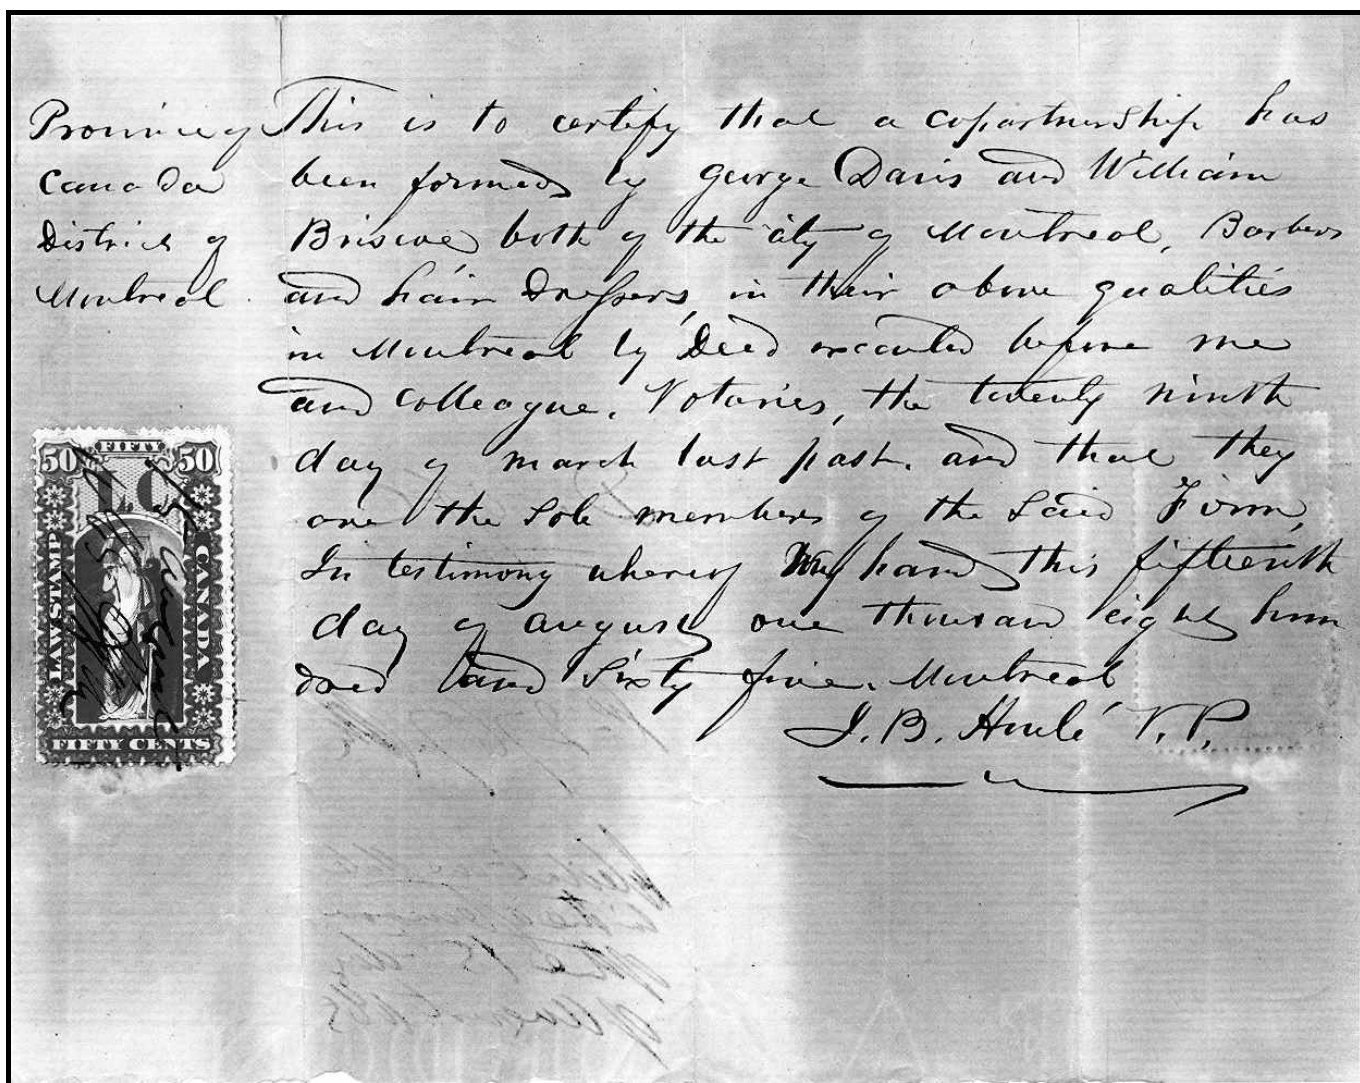 Province of
Canada
District of
Montreal
This is to certify that a copartnership has
been formed by George Davis and William
Briscoe both of the city of Montreal, Barbers
and hair Dressers, in their above qualities
in Montreal by Deed executed before me
and colleague, Notaries, the twenty ninth
day of march last past, and that they
are the Sole members of the Said Firm,
In testimony whereof my hand this fifteenth
day of august one thousand eight hun
dred and Sixty five. Montreal
J. B. Houlé N.P.
FIFTY
50 50
LC
LAW STAMP
CANADA
FIFTY CENTS